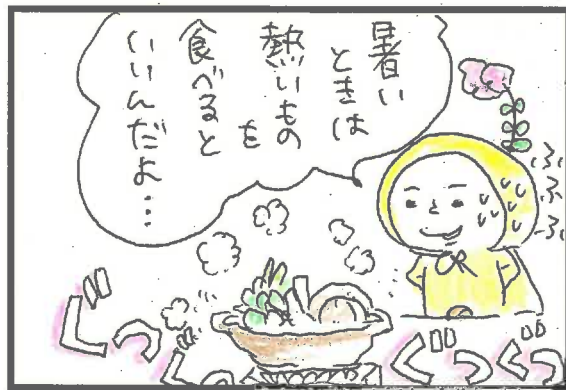 暑い
ときは
熱いもの
を
食べると
いいんだよ…
ふふふ…
ぐつ
ぐつぐつ